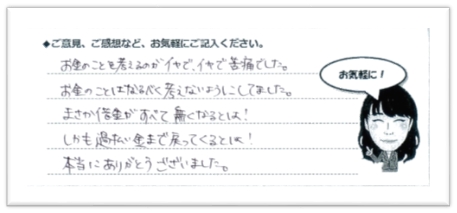 ◆ご意見、ご感想など、お気軽にご記入ください。
お金のことを考えるのがイヤで、イヤで苦痛でした。
お金のことはなるべく考えないようにしてました。
まさか借金がすべて無くなるとは!
しかも過払い金まで戻ってくるとは!
本当にありがとうございました。
お気軽に!